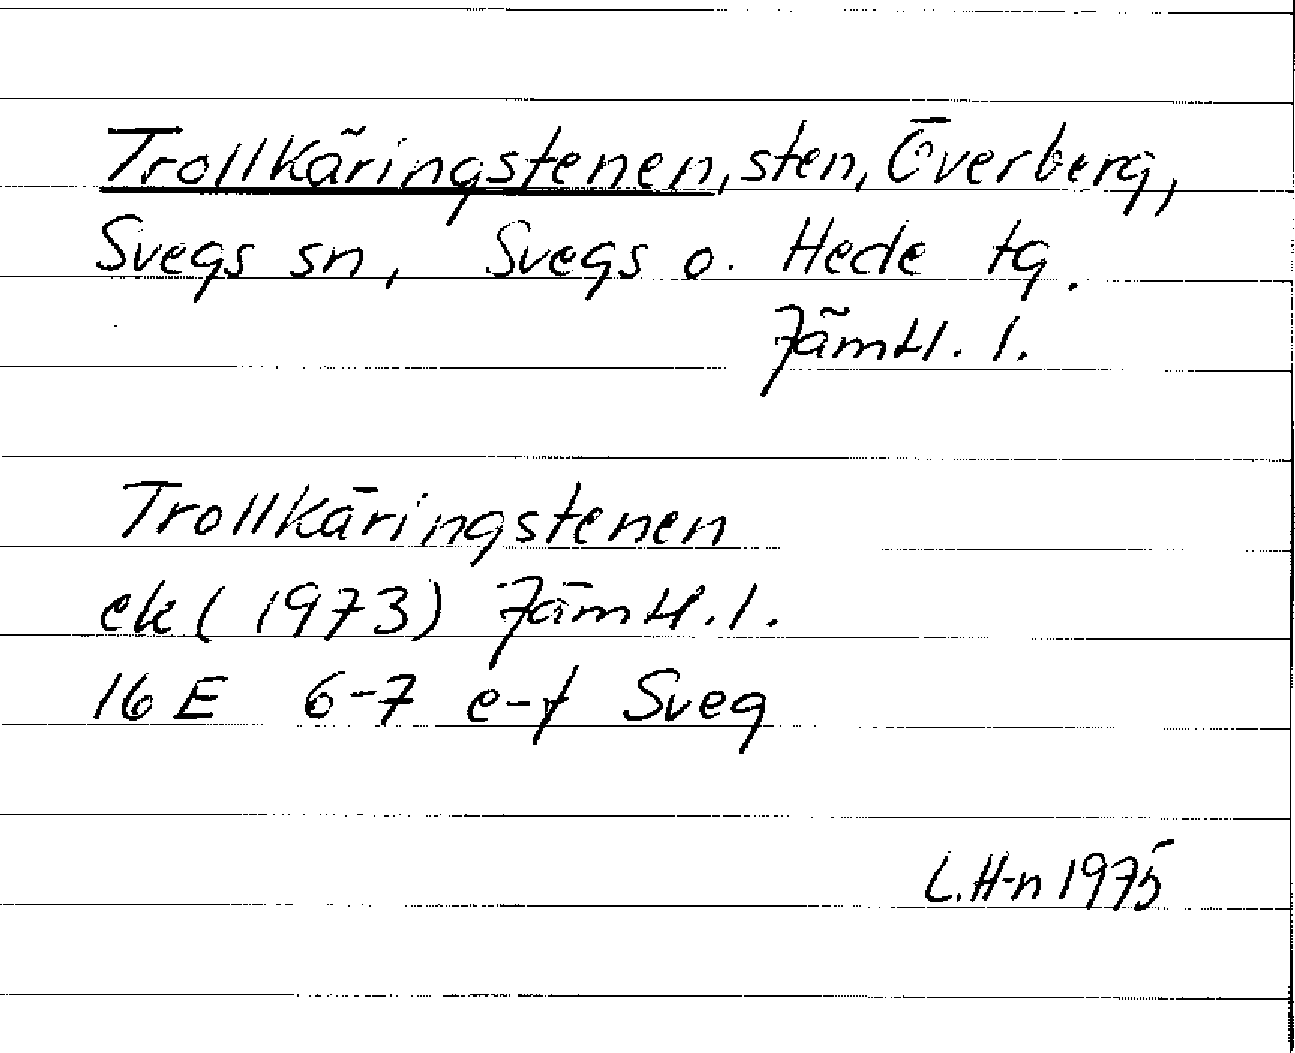 Trollkäringstenen, sten, Överberg,
Svegs sn, Svegs o. Hede tg.
Jämtl. l.
Trollkäringstenen
ek (1973) Jämtl. l.
16 E 6-7 e-f Sveg
L. H-n 1975